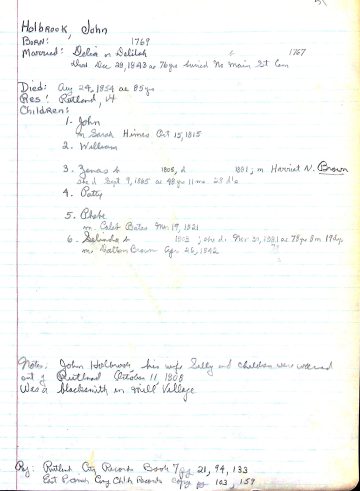 Holbrook, John
Born: 1769
Married: Delia or Delilah 1767
died Dec 28, 1843 ae 76 yrs buried No Main St Cem
Died: Aug 24, 1854 ae 85 yrs
Res: Rutland, Vt
Children:
1. John
m Sarah Himes Oct 15, 1815
2. William
3. Zenas b 1805, d 1881; m Harriet N. Brown
she d Sept 9, 1885 ae 48 yrs 11 mo 28 d's
4. Patty
5. Phebe
m. Caleb Bates Mr. 19, 1821
6. Belinda b ; she d. ae 78 yrs 8 m 19 dys
m. Dalton Brown Apr 26, 1842
Notes, John Holbrook, his wife Sally and children were warned
out of Rutland October 11, 1808
Was a blacksmith in Mill Village
Rf: Rutland City Records Book 7 pg 21, 94, 133
East Parish Cong Chh Records copy pg 103, 159